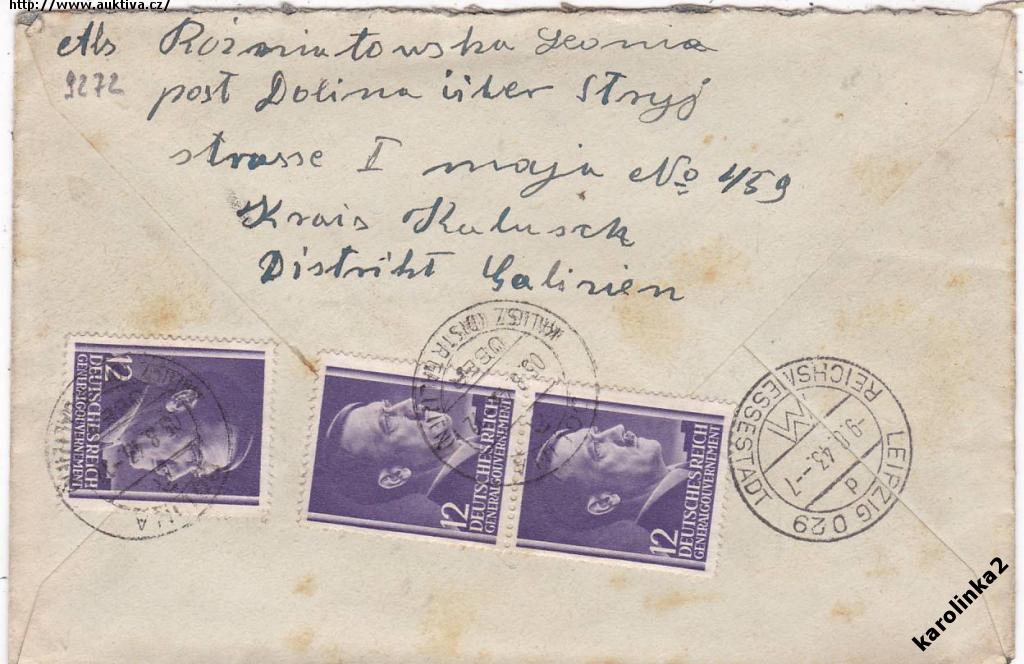 http://www.auktiva.cz/
Abs Rożniatowska Leonia
9272 post Dolina über Stryj
strasse I maja No 459
Krais Kalusch
Distrikt Galizien
12
DEUTSCHES REICH
GENERALGOUVERNEMENT
12
DEUTSCHES REICH
GENERALGOUVERNEMENT
12
DEUTSCHES REICH
GENERALGOUVERNEMENT
LEIPZIG D 29
REICHSMESSESTADT
43.
d
karolinka2